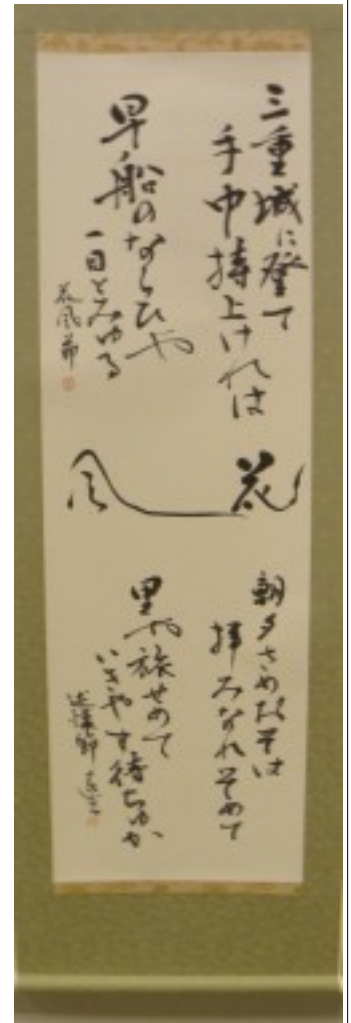 三重城に登て
手巾持上けれは
早船のならひや
一目とみゆる
花風節
花風
朝夕さもおそは
拝みなれそめて
里や旅せめて
いきやす待ちゆか
述懐節